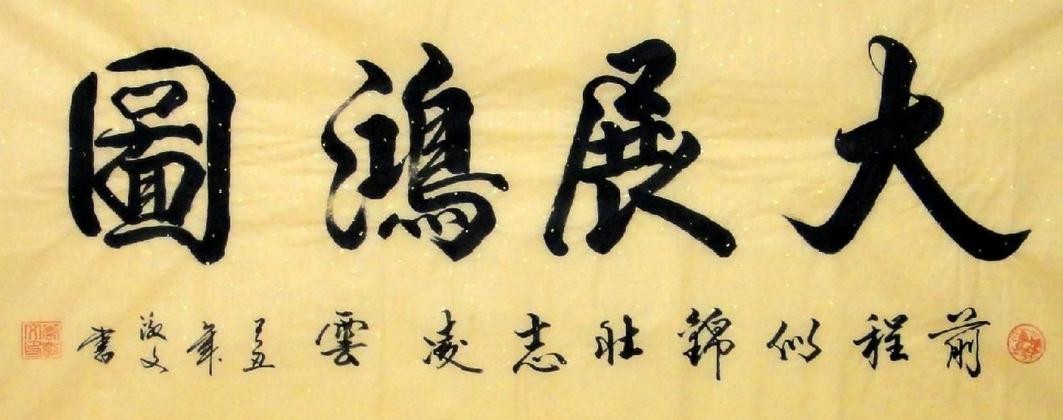 大展鴻圖
前程似錦壯志凌雲己丑年淑文書